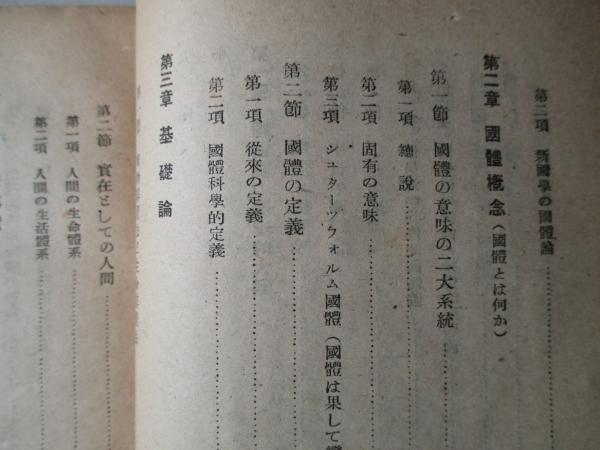 第二項 新國學の國體論
第二章 國體概念（國體とは何か）
第一節 國體の意味の二大系統
第一項 總說
第二項 固有の意味
第三項 シュターツフォルム國體（國體は果して
第二節 國體の定義
第一項 從來の定義
第二項 國體科學的定義
第三章 基礎論
第二節 實在としての人間
第一項 人間の生命體系
第二項 人間の生活體系